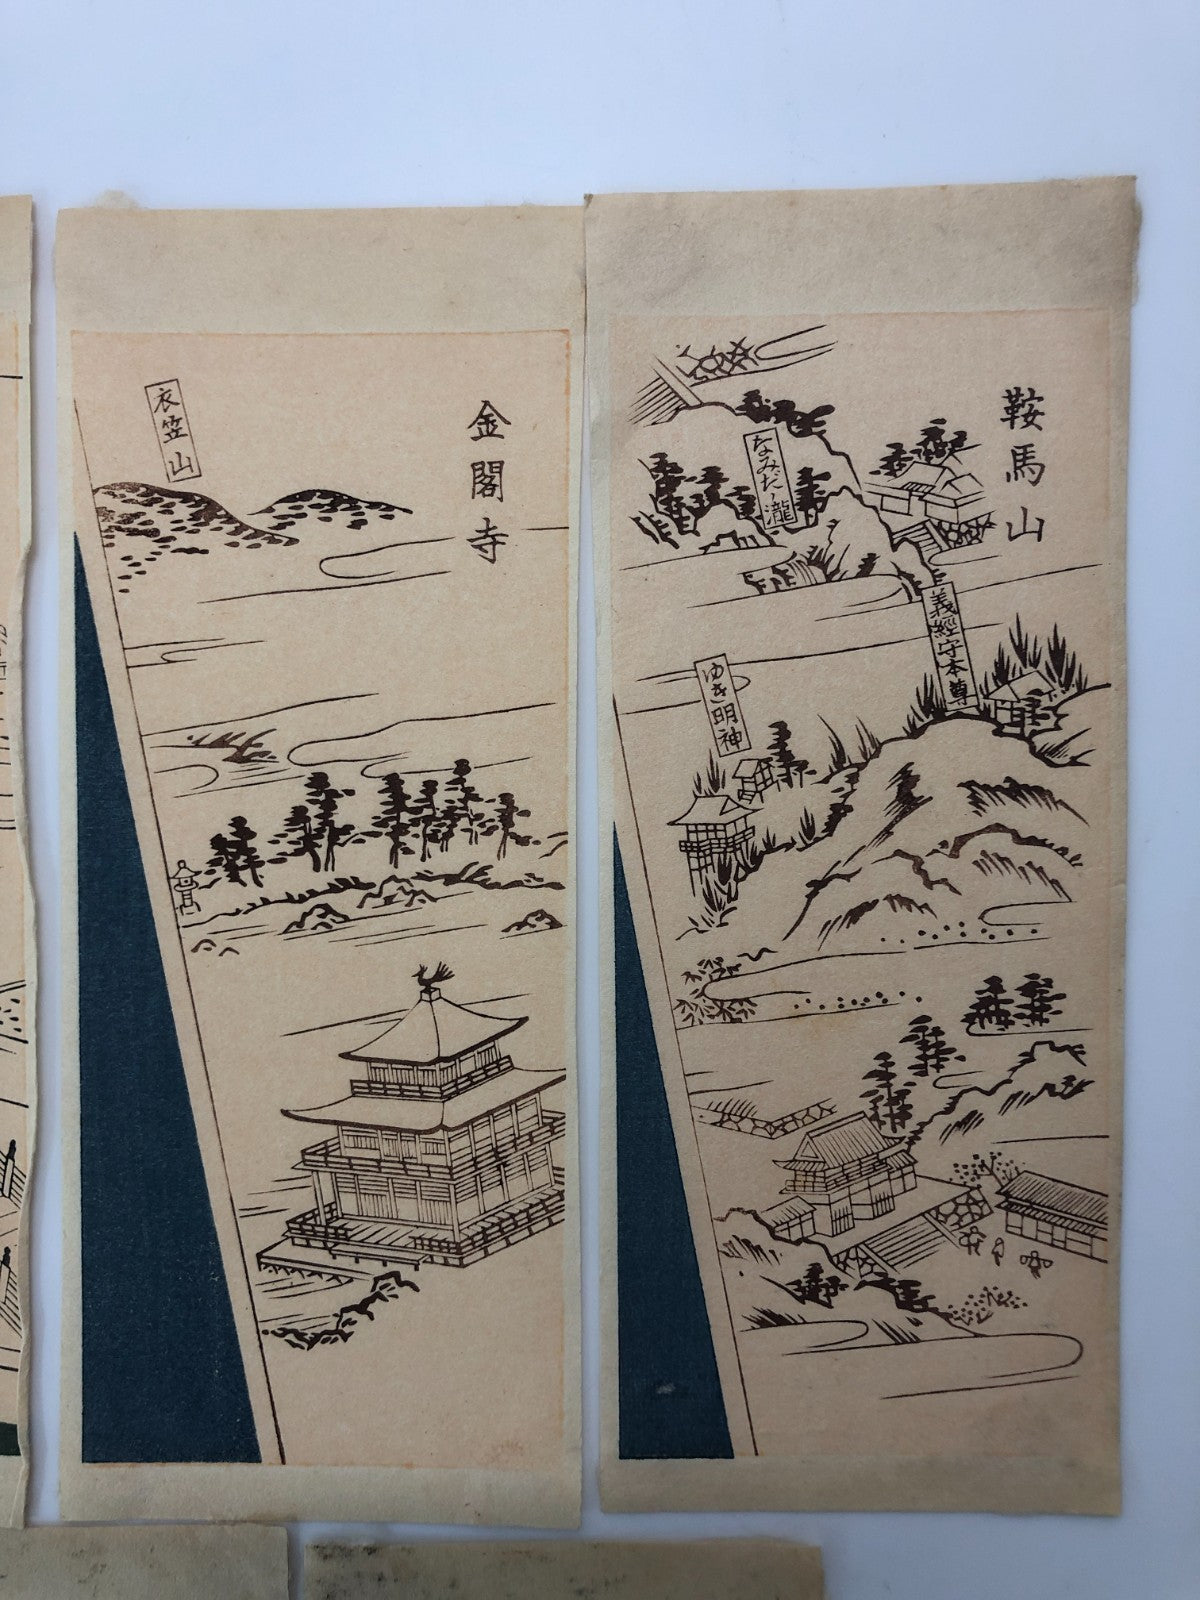 金閣寺
衣笠山
鞍馬山
なみだノ瀧
義經守本尊
ゆき明神